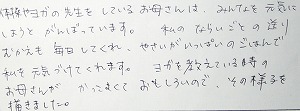 体操やヨガの先生をしているお母さんは、みんなを元気に
しようとがんばっています。 私のならいごとの送り
むかえも毎日してくれ、やさいがいっぱいのごはんで
私を元気づけてくれます。 ヨガを教えている時の
お母さんが かっこよくて おもしろいので、その様子を
描きました。